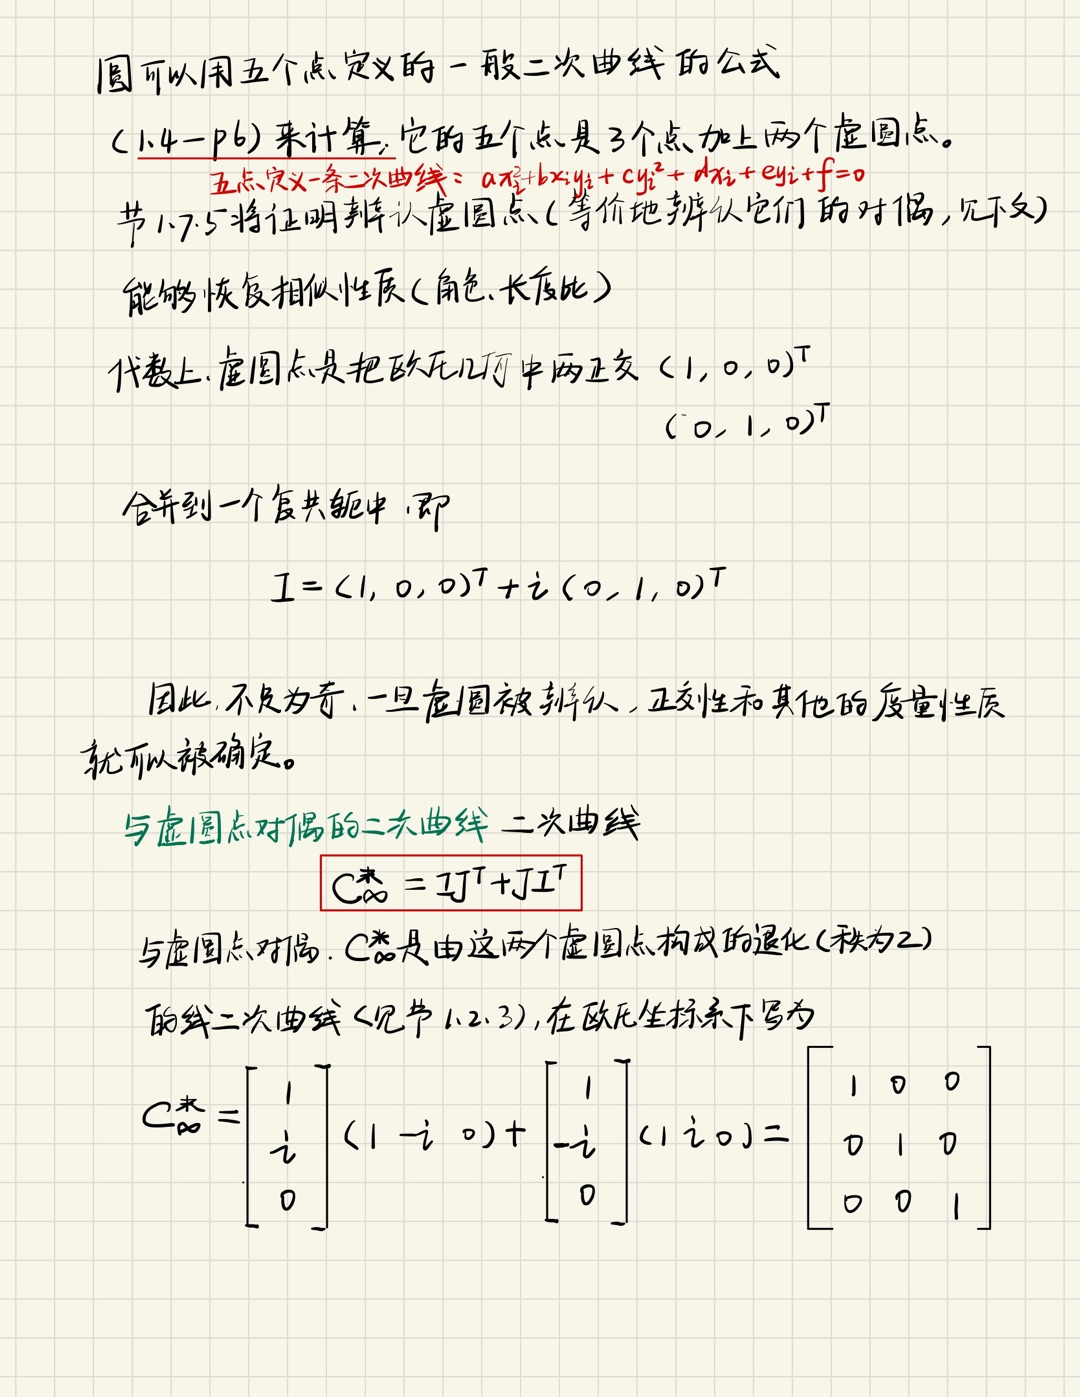 圆可以用五个点定义的一般二次曲线的公式
(1.4-P6)来计算,它的五个点是3个点加上两个虚圆点。
五点定义一条二次曲线: axi²+bxiyi+cyi²+dxi+eyi+f=0
节1.7.5将证明辨认虚圆点(等价地辨认它们的对偶,见下文)
能够恢复相似性质(角色、长度比)
代数上、虚圆点是把欧氏几何中两正交 (1, 0, 0)ᵀ
(0, 1, 0)ᵀ
合并到一个复共轭中,即
I=(1, 0, 0)ᵀ+i(0, 1, 0)ᵀ
因此,不足为奇、一旦虚圆被辨认,正交性和其他的度量性质
就可以被确定。
与虚圆点对偶的二次曲线 二次曲线
C*∞ = IJᵀ+JIᵀ
与虚圆点对偶. C*∞是由这两个虚圆点构成的退化(秩为2)
的线二次曲线(见节1.2.3),在欧氏坐标系下写为
C*∞ = [1 i 0] (1 -i 0)+ [1 -i 0] (1 i 0)= [1 0 0
0 1 0
0 0 1]